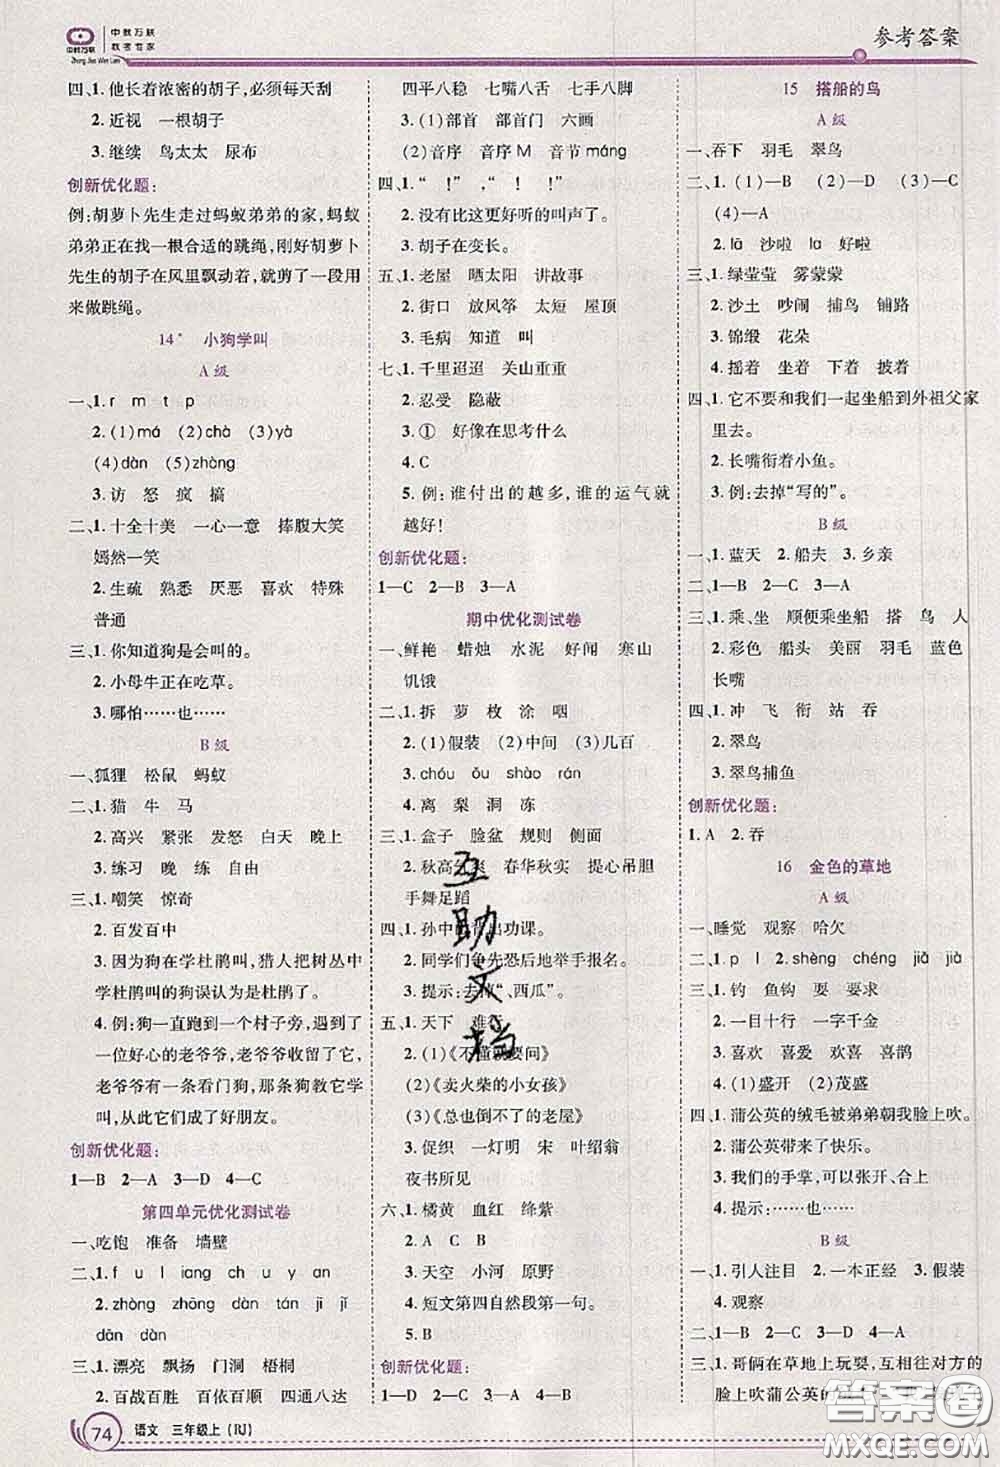 中教万联
中教万联
教考专家
Zhong Jiao Wan Lian
参考答案
四、1. 他长着浓密的胡子,必须每天刮
2. 近视　一根胡子
3. 继续　鸟太太　尿布
创新优化题:
例:胡萝卜先生走过蚂蚁弟弟的家,蚂蚁
弟弟正在找一根合适的跳绳,刚好胡萝卜
先生的胡子在风里飘动着,就剪了一段用
来做跳绳。
14* 小狗学叫
A 级
一、1. r　m　t　p
2. (1)má　(2)chà　(3)yà
(4)dàn　(5)zhòng
3. 访　怒　疯　搞
二、1. 十全十美　一心一意　捧腹大笑
嫣然一笑
2. 生疏　熟悉　厌恶　喜欢　特殊
普通
三、1. 你知道狗是会叫的。
2. 小母牛正在吃草。
3. 哪怕……也……
B 级
一、狐狸　松鼠　蚂蚁
二、1. 猫　牛　马
2. 高兴　紧张　发怒　白天　晚上
3. 练习　晚　练　自由
三、1. 嘲笑　惊奇
2. 百发百中
3. 因为狗在学杜鹃叫,猎人把树丛中
学杜鹃叫的狗误认为是杜鹃了。
4. 例:狗一直跑到一个村子旁,遇到了
一位好心的老爷爷,老爷爷收留了它。
老爷爷有一条看门狗,小狗教它学
叫,从此它们成了好朋友。
创新优化题:
1—B　2—A　3—D　4—C
第四单元优化测试卷
一、吃饱　准备　墙壁
二、1. f　u　l　iang　ch　u　y　an
2. zhòng　zhōng　dàn　tán　jǐ　jī
dān　dàn
三、1. 漂亮　飘扬　门洞　梧桐
2. 百战百胜　百依百顺　四通八达
四平八稳　七嘴八舌　七手八脚
3. (1)部首　部首门　六画
(2)音序　音序M　音节máng
四、1. “　!”　,“　!”
2. 没有比这更好听的叫声了。
3. 胡子在变长。
五、1. 老屋　晒太阳　讲故事
2. 街口　放风筝　太短　屋顶
3. 毛病　知道　叫
七、1. 千里迢迢　关山重重
2. 忍受　隐蔽
3. ①　好像在思考什么
4. C
5. 例:谁付出的越多,谁的运气就
越好!
创新优化题:
1—C　2—B　3—A
期中优化测试卷
一、鲜艳　蜡烛　水泥　好闻　寒山
饥饿
二、1. 拆　萝　枚　涂　咽
2. (1)假装　(2)中间　(3)几百
3. chóu　ǒu　shào　rán
4. 离　梨　洞　冻
三、1. 盒子　脸盆　规则　侧面
2. 秋高气爽　春华秋实　提心吊胆
手舞足蹈
四、1. 孙中山背出功课。
2. 同学们争先恐后地举手报名。
3. 提示:去掉“、西瓜”。
五、1. 天下　难
2. (1)《不懂就要问》
(2)《卖火柴的小女孩》
(3)《总也倒不了的老屋》
3. 促织　一灯明　宋　叶绍翁
夜书所见
六、1. 橘黄　血红　绛紫
2. A　C　B
3. 天空　小河　原野
4. 短文第四自然段第一句。
5. B
创新优化题:
1—D　2—C　3—A　4—B
15　搭船的鸟
A 级
一、吞下　羽毛　翠鸟
二、1. (1)—B　(2)—D　(3)—C
(4)—A
2. lā　沙啦　la　好啦
三、1. 绿莹莹　雾蒙蒙
2. 沙土　吵闹　捕鸟　铺路
3. 锦缎　花朵
4. 摇着　坐着　下着　披着
四、1. 它不要和我们一起坐船到外祖父家
里去。
2. 长嘴衔着小鱼。
3. 例:去掉“写的”。
B 级
一、1. 蓝天　2. 船夫　3. 乡亲
二、1—B　2—C　3—A
三、1. 乘、坐　顺便乘坐船　搭　鸟　人
2. 彩色　船头　美丽　羽毛　蓝色
长嘴
四、1. 冲　飞　衔　站　吞
2. 翠鸟
3. 翠鸟捕鱼
创新优化题:
1. A　2. 吞
16　金色的草地
A 级
一、睡觉　观察　哈欠
二、1. p　l　2. shèng　chéng　jiǎ　jià
三、1. 钓　鱼钩　耍　要求
2. 一目十行　一字千金
3. 喜欢　喜爱　欢喜　喜鹊
4. (1)盛开　(2)茂盛
四、1. 蒲公英的绒毛被弟弟朝我脸上吹。
2. 蒲公英带来了快乐。
3. 我们的手掌,可以张开、合上
4. 提示:……也……
B 级
一、1. 引人注目　2. 一本正经　3. 假装
4. 观察
二、1—B　2—C　3—A　4—D
三、1. 哥俩在草地上玩耍,互相往对方的
脸上吹蒲公英的
互助文档
74　语文　三年级上(RJ)
答案圈
MXQE.COM